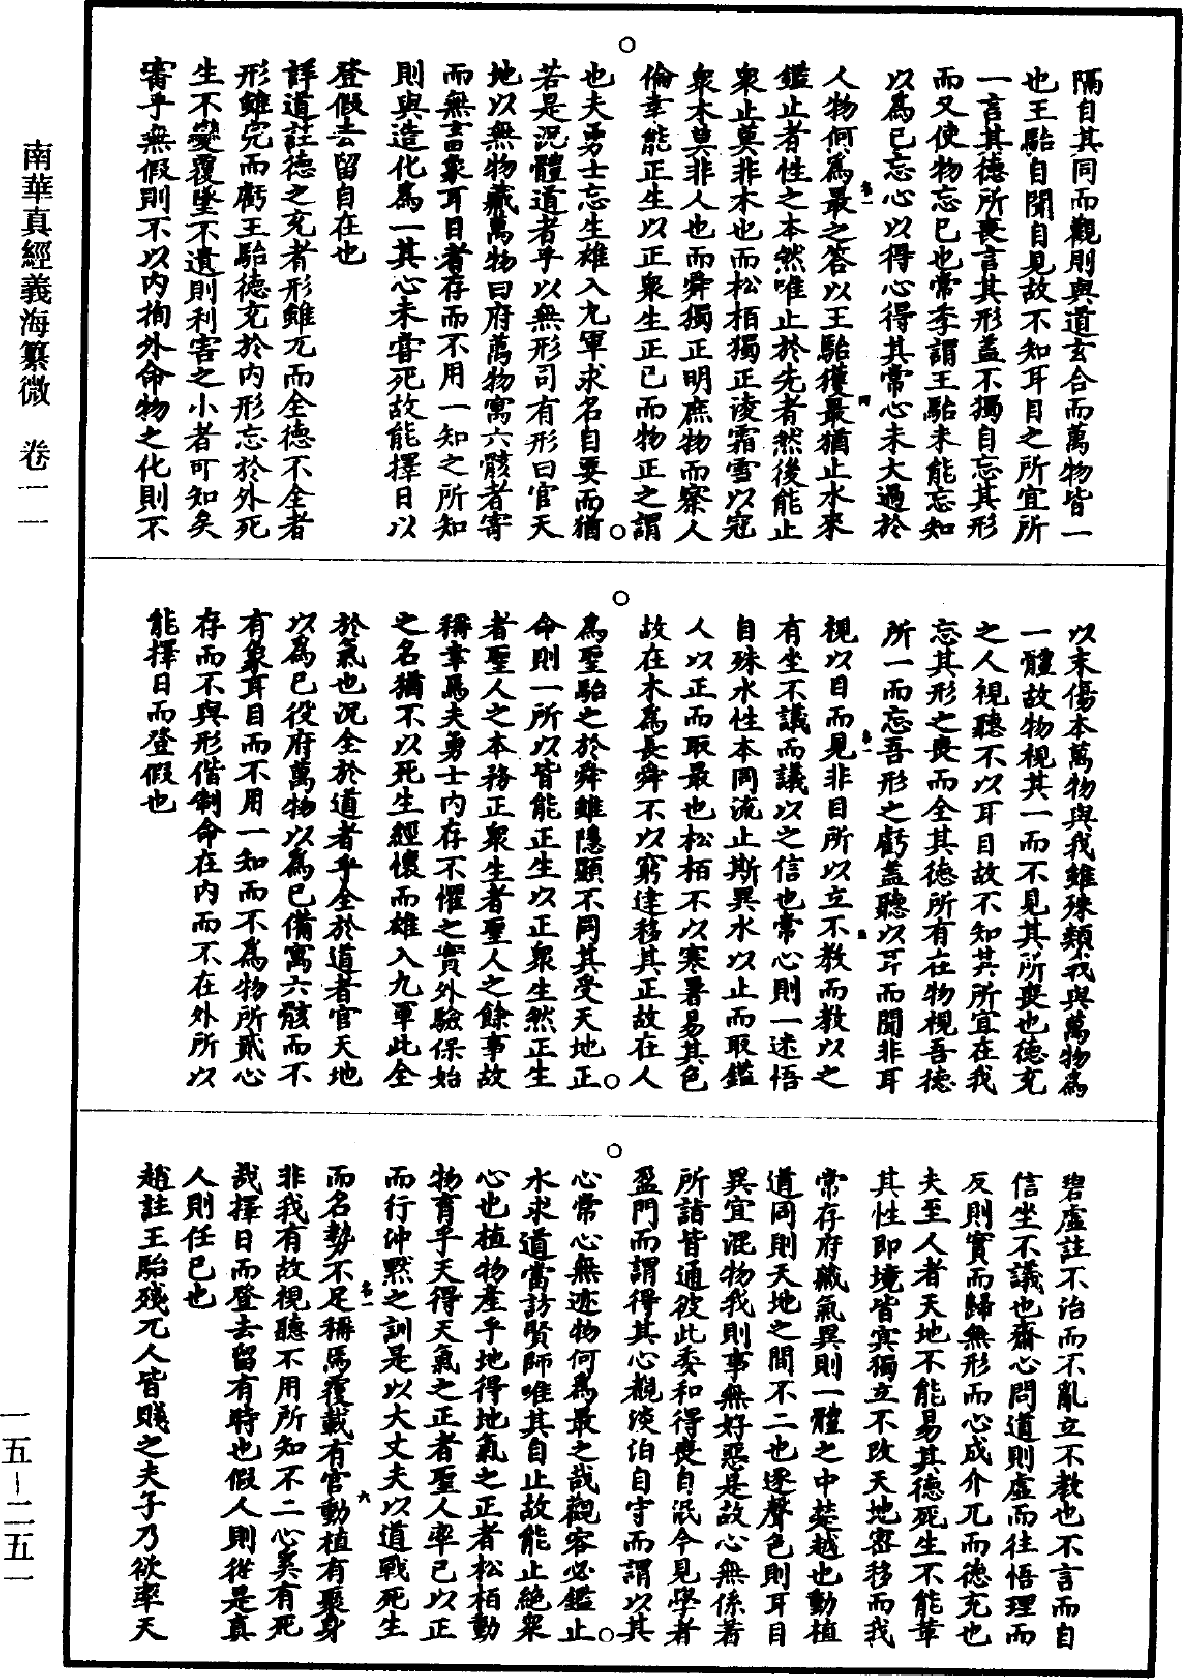 南華真經義海纂微　卷一一
隔自其同而觀則與道玄合而萬物皆一
也王駘自聞自見故不知耳目之所宜所
一言其德所喪言其形蓋不獨自忘其形
而又使物忘已也常季謂王駘未能忘知
以為已忘心以得心得其常心未大過於
人物何為最之答以王駘獲最猶止水來
鑑止者性之本然唯止於先者然後能止
衆止莫非木也而松栢獨正凌霜雪以冠
衆木莫非人也而舜獨正明庶物而察人
倫幸能正生以正衆生正已而物正之謂
也夫勇士忘生雄入九軍求名自要而猶
若是況體道者乎以無形司有形曰官天
地以無物藏萬物曰府萬物寓六骸者寄
而無言象耳目者存而不用一知之所知
則與造化為一其心未甞死故能擇日以
登假去留自在也
詳道註德之充者形雖兀而全德不全者
形雖完而虧王駘德充於內形忘於外死
生不變覆墜不遺則利害之小者可知矣
審乎無假則不以內拘外命物之化則不
以末傷本萬物與我雖殊類我與萬物為
一體故物視其一而不見其所喪也德充
之人視聽不以耳目故不知其所宜在我
忘其形之喪而全其德所有在物視吾德
所一而忘吾形之虧蓋聽以耳而聞非耳
視以目而見非目所以立不教而教以之
有坐不議而議以之信也常心則一迷悟
自殊水性本同流止斯異水以止而取鑑
人以正而取最也松栢不以寒暑易其色
故在木為長舜不以窮達移其正故在人
為聖駘之於舜雖隱顯不同其受天地正
命則一所以皆能正生以正衆生然正生
者聖人之本務正衆生者聖人之餘事故
稱幸焉夫勇士內存不懼之實外驗保始
之名猶不以死生經懷而雄入九軍此全
於氣也況全於道者乎全於道者官天地
以為已役府萬物以為已備寓六骸而不
有象耳目而不用一知而不為物所貳心
存而不與形偕制命在內而不在外所以
能擇日而登假也
碧虛註不治而不亂立不教也不言而自
信坐不議也齋心問道則虛而往悟理而
反則實而歸無形而心成介兀而德充也
夫至人者天地不能易其德死生不能革
其性即境皆寂獨立不改天地密移而我
常存府藏氣異則一體之中楚越也動植
道同則天地之間不二也逐聲色則耳目
異宜混物我則事無好惡是故心無係著
所詣皆通彼此委和得喪自泯今見學者
盈門而謂得其心觀淡泊自守而謂以其
心常心無迹物何為最之哉觀容必鑑止
水求道當訪賢師唯其自止故能止絶衆
心也植物產乎地得地氣之正者松栢動
物育乎天得天氣之正者聖人率已以正
而行沖默之訓是以大丈夫以道戰死生
而名勢不足稱焉覆載有官動植有聚身
非我有故視聽不用所知不二心奚有死
哉擇日而登去留有時也假人則從是真
人則任已也
趙註王駘殘兀人皆賤之夫子乃欲率天
一五－二五一